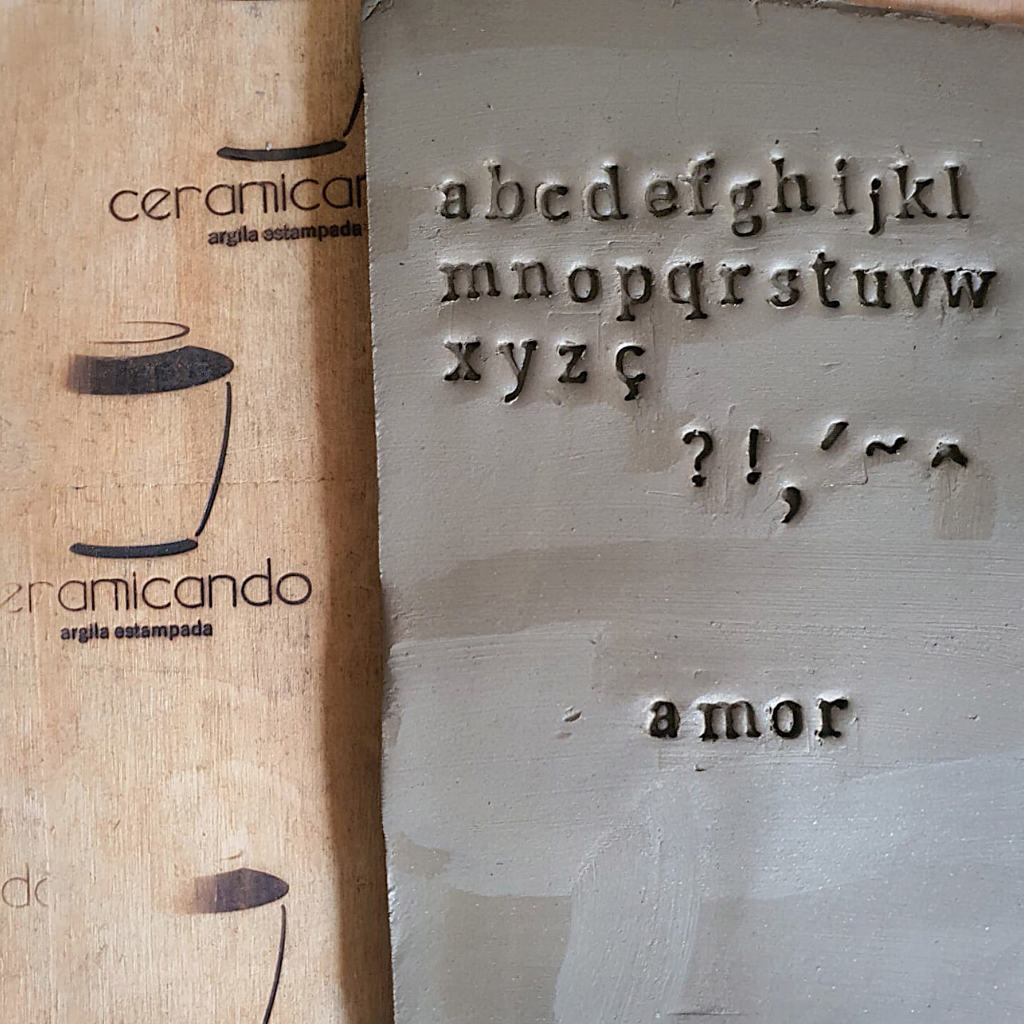 ceramicar
argila estampada
eramicando
argila estampada
do
abcdefghijkl
mnopqrstuvw
xyzç
?!,´~^
amor